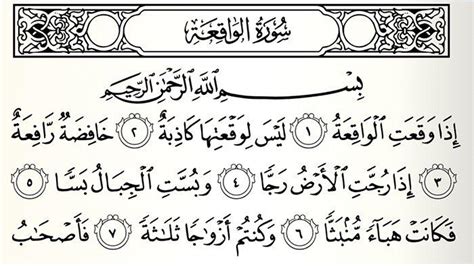 سُورَةُ الوَاقِعَةِ
بِسْمِ اللَّهِ الرَّحْمَٰنِ الرَّحِيمِ
إِذَا وَقَعَتِ الْوَاقِعَةُ ١ لَيْسَ لِوَقْعَتِهَا كَاذِبَةٌ ٢ خَافِضَةٌ رَّافِعَةٌ
٣ إِذَا رُجَّتِ الْأَرْضُ رَجًّا ٤ وَبُسَّتِ الْجِبَالُ بَسًّا ٥
فَكَانَتْ هَبَاءً مُّنبَثًّا ٦ وَكُنتُمْ أَزْوَاجًا ثَلَاثَةً ٧ فَأَصْحَابُ